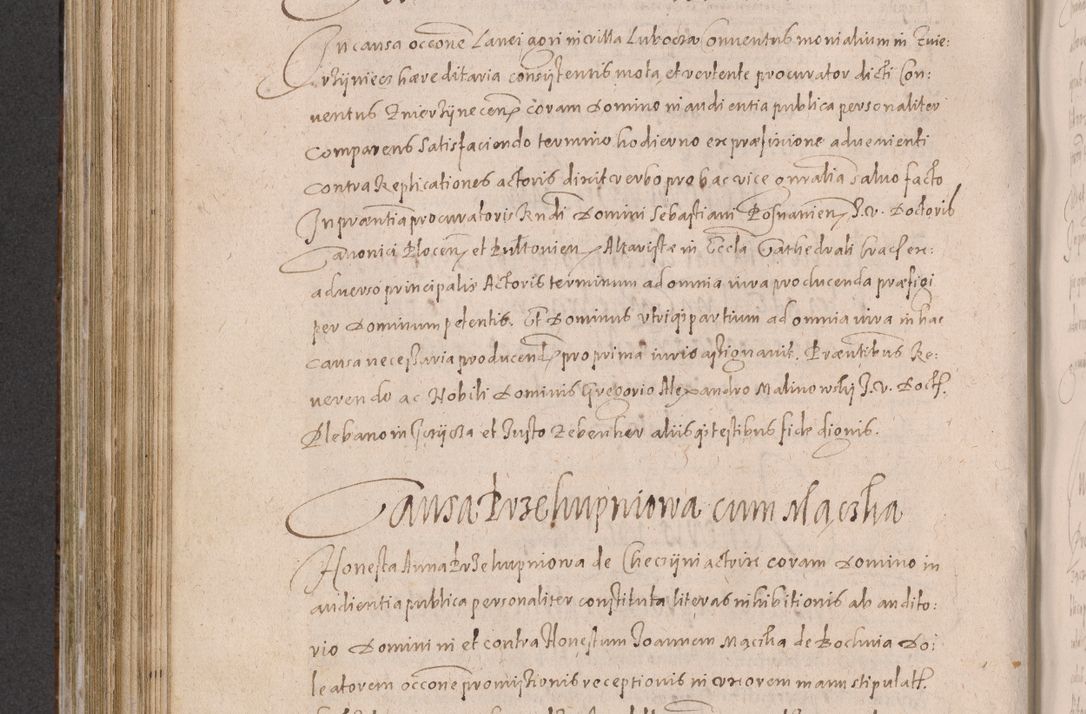 In causa occone Lanei agri in villa Lubocza Conventus monialium in Zwie:
rzijniecz hæreditaria consistentis mota et vertente procurator dicti Con:
ventus Zwierzijnecen coram Domino in audientia publica personaliter
Comparens Satisfaciendo termino hodierno ex præfixione advenienti
Contra Replicationes actoris dixit verbo pro hac vice gnralia salvo facto
In præntia procuratoris Rndi Domini Sebastiani Posnanien J. v. Doctoris
Canonici Plocen et Pultovien Altaristæ in Eccla Cathedrali Crac ex:
adverso principalis Actoris terminum ad omnia iura producenda præfigi
per Dominum petentis. Et Dominus utriqz partium ad omnia iura in hac
causa necessaria producend pro prima iuris assignavit. Præntibus Re:
verendo ac Nobili Dominis Gregorio Alexandro Malinowski J. v. Doct.
Plebano in et Justo Zebenher aliis qz testibus fide dignis.
Causa Przekupniowa cum Mączka
Honesta Anna Przekupniowa de Checzijni actrix coram Domino in
audientia publica personaliter constituta literas inhibitionis ab audito:
rio Domini ni et contra Honestum Joannem Mączka de Bochnia Do:
leatorem occone promissionis receptionis in uxorem manu stipulat.